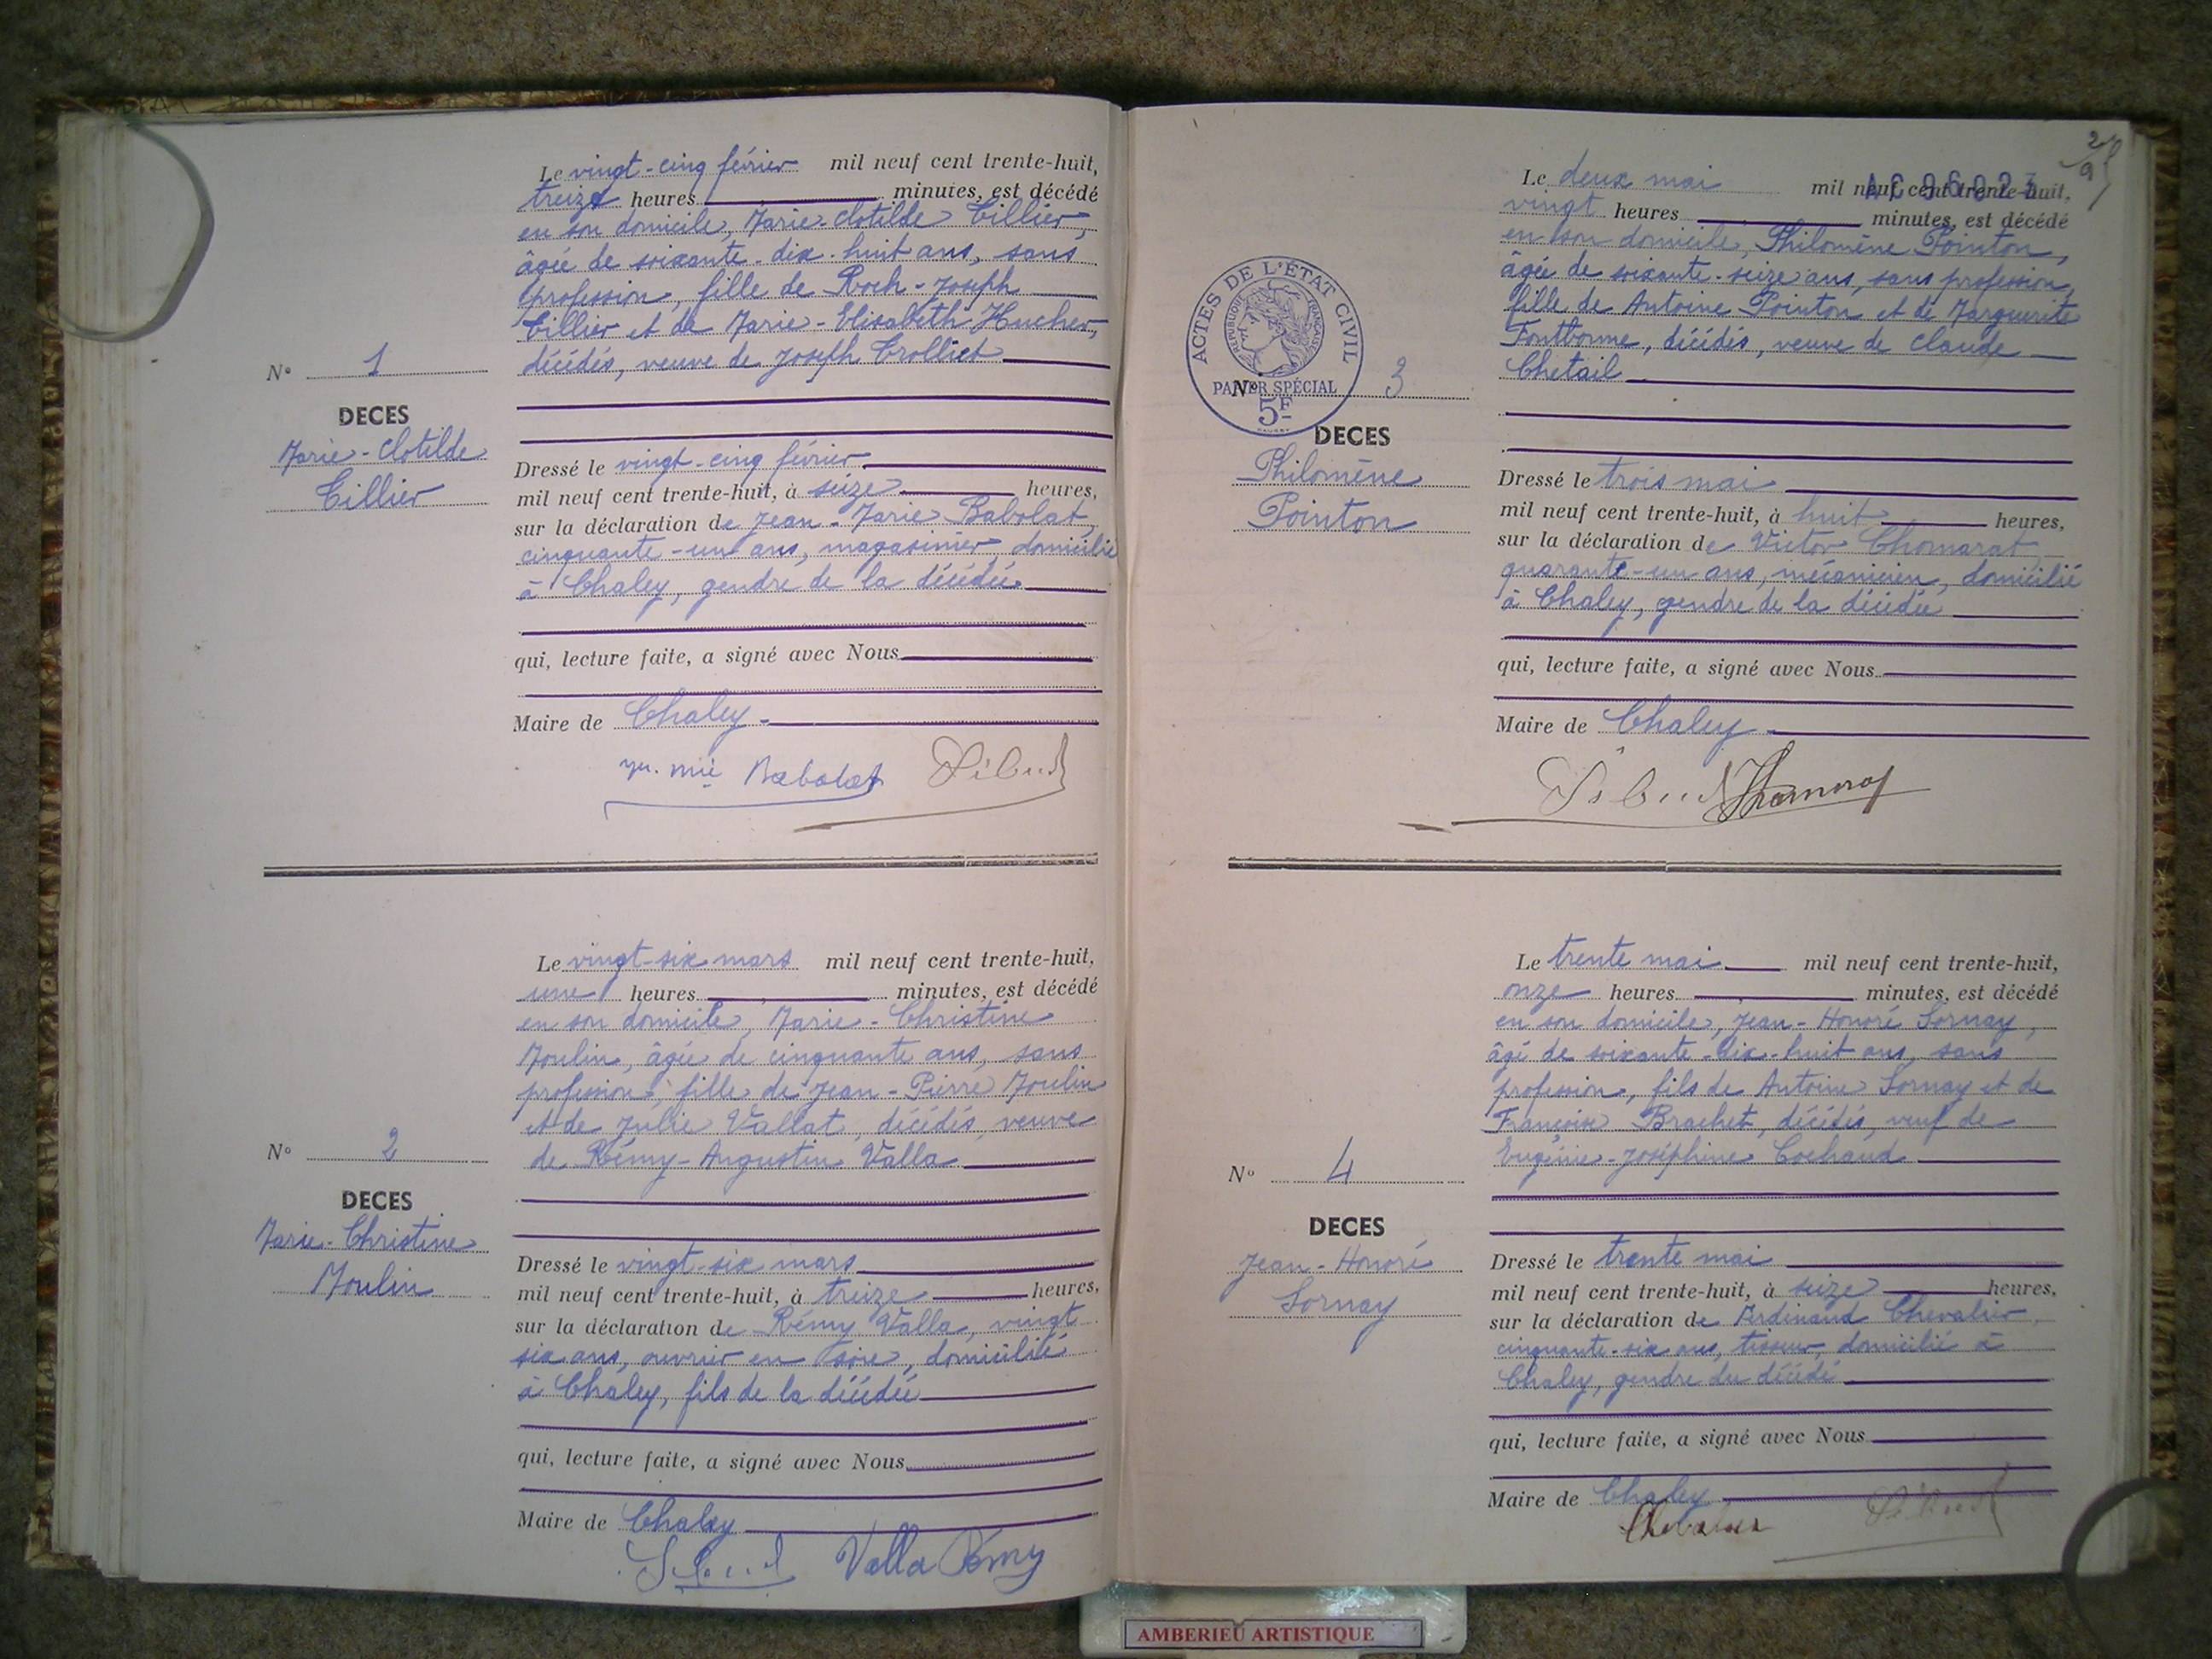 Le vingt-cinq février mil neuf cent trente-huit,
treize heures minutes, est décédé
en son domicile, Marie-Clotilde Tillier,
âgée de soixante-dix-huit ans, sans
profession, fille de Roch-Joseph
Tillier et de Marie-Elisabeth Hucher,
décédés, veuve de Joseph Trolliet
N° 1
DECES
Marie-Clotilde
Tillier
Dressé le vingt-cinq février
mil neuf cent trente-huit, à seize heures,
sur la déclaration de Jean-Marie Babolat,
cinquante-un ans, magasinier, domicilié
à Chaley, gendre de la décédée
qui, lecture faite, a signé avec Nous
Maire de Chaley
Babolat
Le vingt-six mars mil neuf cent trente-huit,
une heures minutes, est décédé
en son domicile, Marie-Christine
Moulin, âgée de cinquante ans, sans
profession, fille de Jean-Pierre Moulin
et de Julie Vallat, décédés, veuve
de Rémy-Augustin Valla
N° 2
DECES
Marie-Christine
Moulin
Dressé le vingt-six mars
mil neuf cent trente-huit, à treize heures,
sur la déclaration de Rémy Valla, vingt
six ans, ouvrier en soie, domicilié
à Chaley, fils de la décédée
qui, lecture faite, a signé avec Nous
Maire de Chaley
Valla Rémy
2/9
AC 96023
Le deux mai mil neuf cent trente-huit,
vingt heures minutes, est décédé
en son domicile, Philomène Pointon,
âgée de soixante-seize ans, sans profession,
fille de Antoine Pointon et de Marguerite
Fontbonne, décédés, veuve de Claude
Chetail
ACTES DE L'ÉTAT CIVIL
RÉPUBLIQUE FRANÇAISE
PAPIER SPÉCIAL
5F
N° 3
DECES
Philomène
Pointon
Dressé le trois mai
mil neuf cent trente-huit, à huit heures,
sur la déclaration de Victor Chomarat
quarante-un ans, mécanicien, domicilié
à Chaley, gendre de la décédée
qui, lecture faite, a signé avec Nous
Maire de Chaley
Le trente mai mil neuf cent trente-huit,
onze heures minutes, est décédé
en son domicile, Jean-Honoré Sornay,
âgé de soixante-dix-huit ans, sans
profession, fils de Antoine Sornay et de
Françoise Brachet, décédés, veuf de
Eugénie-Joséphine Cochaud
N° 4
DECES
Jean-Honoré
Sornay
Dressé le trente mai
mil neuf cent trente-huit, à seize heures,
sur la déclaration de Ferdinand Chevalier,
cinquante-six ans, tisseur, domicilié à
Chaley, gendre du décédé
qui, lecture faite, a signé avec Nous
Maire de Chaley
Chevalier
AMBERIEU ARTISTIQUE